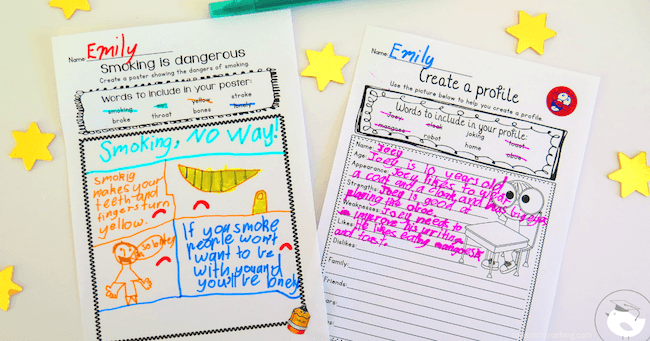 Name: Emily
Smoking is dangerous
Create a poster showing the dangers of smoking.
Words to include in your poster:
smoking yellow stroke
broke throat bones lonely
Smoking, No Way!
smokig
makes your
teeth and
fingers turn
yellow.
so lonley
If you smoke
people won't
want to be
with you and
you'll be lonely
Name: Emily
Create a profile
Use the picture below to help you create a profile.
Words to include in your profile:
Joey oak joking toast
mangoes robot home oboe
Name: Joey
Age: Joey is 10 years old
Appearance: Joey likes to wear
a coat and a cloak and has big eyes
Strengths: Joey is good at
playing the oboe.
Weaknesses: Joey needs to
improve his writing
Likes: He likes eating mangoes
and toast.
Dislikes:
Family:
Friends: